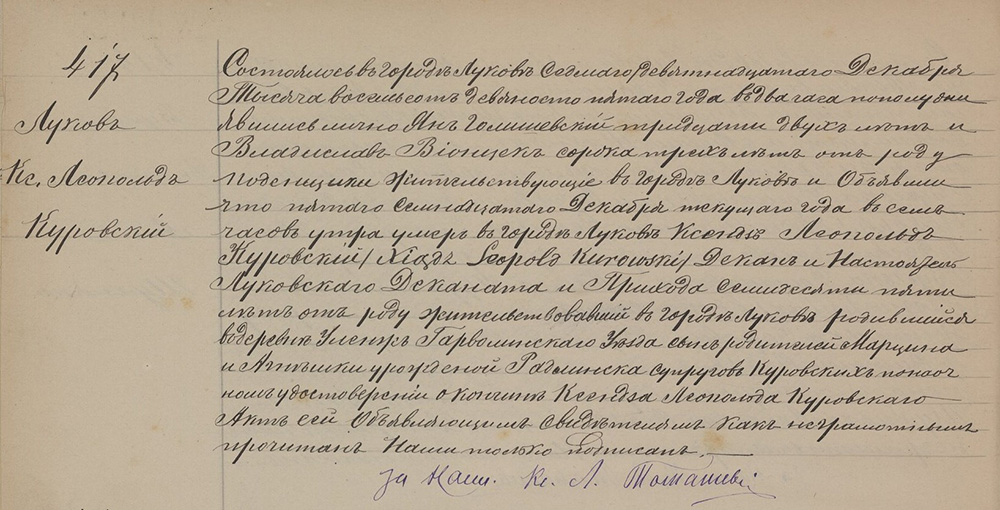 417
Луковъ
Кс. Леопольдъ
Куровскій
Состоялось въ городѣ Луковѣ Седмаго/девятнадцатаго Декабря
Тысяча восемьсотъ девяносто пятаго года въ два часа по полудни
явились лично Янъ Голишевскій тридцати двухъ лѣтъ и
Владиславъ Віонцекъ сорока трехъ лѣтъ отъ роду
поденщики жительствующіе въ городѣ Луковѣ и Объявили
что пятаго семнадцатаго Декабря текущаго года въ семь
часовъ утра умеръ въ городѣ Луковѣ Ксендзъ Леопольдъ
Куровскій /Xiądz Leopold Kurowski/ Деканъ и Настоятель
Луковскаго Деканата и Прихода семидесяти пяти
лѣтъ отъ роду жительствовавшій въ городѣ Луковѣ родившійся
въ деревнѣ Гарволинскаго Уѣзда сынъ родителей Марцина
и урожденой супруговъ Куровскихъ по наоч
номъ удостовереніи о кончинѣ Ксендза Леопольда Куровскаго
Актъ сей Объявляющимъ Свидѣтелямъ какъ неграмотнымъ
прочитанъ Нами только подписанъ. —
За Наст. Кс. Л.